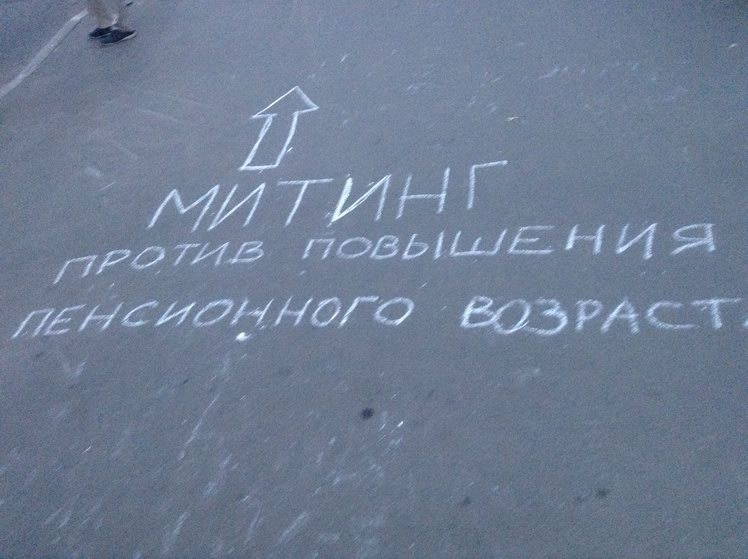 МИТИНГ
ПРОТИВ ПОВЫШЕНИЯ
ПЕНСИОННОГО ВОЗРАСТ